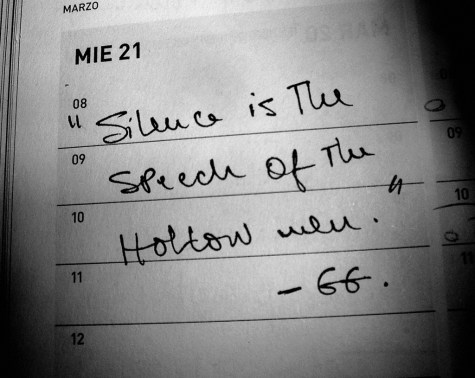 MARZO
MIE 21
08
" Silence is The
09
Speech of The
10
Hollow men. "
11
- GG.
12
09
10
11